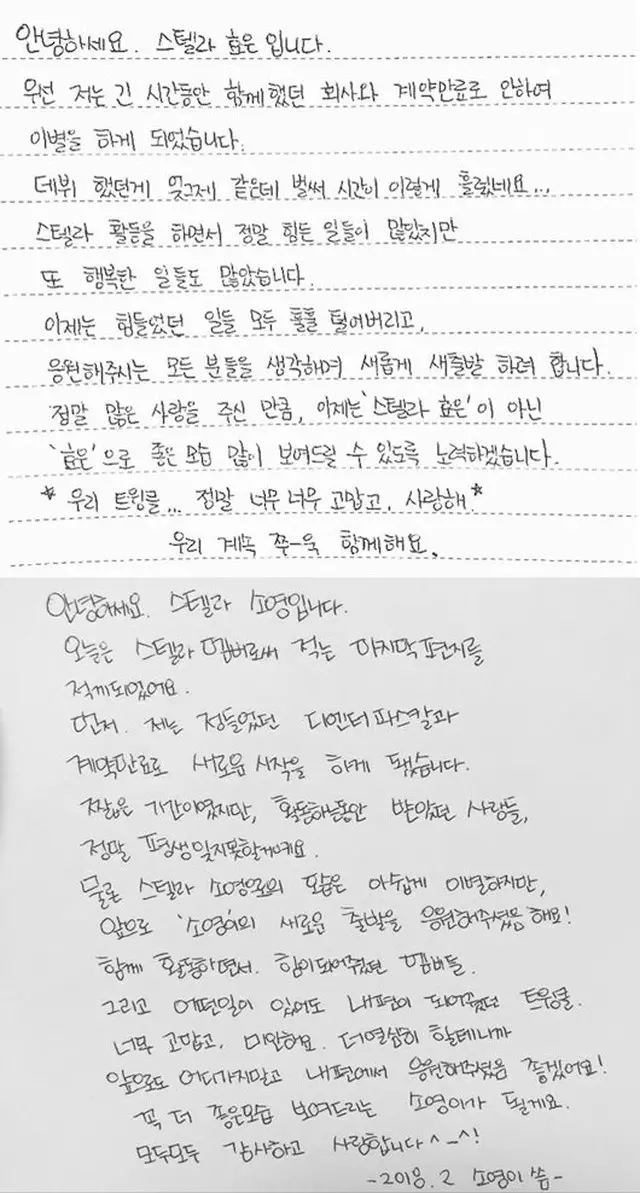 안녕하세요. 스텔라 효은 입니다.
우선 저는 긴 시간동안 함께했던 회사와 계약만료로 인하여
이별을 하게 되었습니다.
데뷔 했던게 엊그제 같은데 벌써 시간이 이렇게 흘렀네요...
스텔라 활동을 하면서 정말 힘든 일들이 많았지만
또 행복한 일들도 많았습니다.
이제는 힘들었던 일들 모두 훌훌 털어버리고,
응원해주시는 모든 분들을 생각하며 새롭게 새출발 하려 합니다.
정말 많은 사랑을 주신 만큼, 이제는 '스텔라 효은'이 아닌
'효은'으로 좋은 모습 많이 보여드릴 수 있도록 노력하겠습니다.
* 우리 트윙클... 정말 너무 너무 고맙고, 사랑해.*
우리 계속 쭈-욱 함께해요.
안녕하세요. 스텔라 소영입니다.
오늘은 스텔라 멤버로써 적는 마지막 편지를
적게되었어요.
먼저. 저는 정들었던 디엔터파스칼과
계약만료로 새로운 시작을 하게 됐습니다.
짧은 기간이였지만, 활동하는동안 받았던 사랑들,
정말 평생잊지못할거예요.
물론 스텔라 소영으로의 모습은 아쉽게 이별하지만,
앞으로 '소영이의 새로운 출발을 응원해주셨음' 해요!
함께 활동하면서. 힘이되어줬던 멤버들.
그리고 어떤일이 있어도 내편이 되어줬던 트윙클.
너무 고맙고, 미안해요. 더열심히 할테니까
앞으로도 어디가지말고 내편에서 응원해주셨음 좋겠어요!
꼭 더 좋은모습 보여드리는 소영이가 될게요.
모두모두 감사하고 사랑합니다^-^!
-2018. 2 소영이 씀-